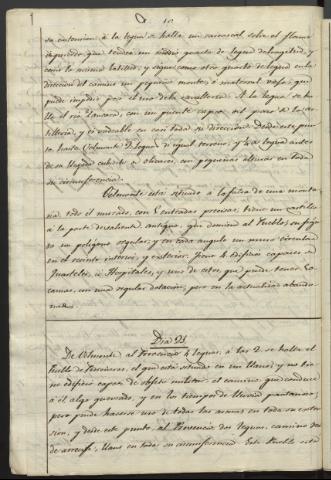 su entension, á la legua se halla, un carrascal, sobre el flanco
izquierdo, que tendrá un medio quarto de legua de longitud, y
como lo mismo latitud, y sigue como otro quarto de legua en la
direccion del camino un pequeño monte, ó matorral vajo, que
puede impedir por el uso de la cavalleria. A la legua se ha
lla el rio Zancara, con un puente capaz del paso de la ar
tilleria, y es vadeable en casi toda su direccion. Desde este pun
to hasta Velmonte 2 leguas, de igual terreno, y ¼ de legua antes
de su llegada cubierto de olivares, con pequeñas alturas en toda
su circunferencia.
Velmonte está situado á la falda de una monta
ña, todo él murado, con 5 entradas precisas, tiene un castillo
á la parte de antiguo, que domina al Pueblo, su figu
ra un poligono regular, y en cada angulo un muro circular
en el recinto interior, y exterior. Tiene 4 edificios capaces de
Quarteles, ú Hospitales, y uno de estos, que puede tener
camas, con una regular dotacion, pero en la actualidad abando
nado.
Dia 21
De Velmonte al 4 leguas, á las 2 se halla el
Pueblo de el que está situado en un llano, y no tie
ne edificio capaz de objeto militar: el camino que conduce
á él algo quevrado, y en los tiempos de lluvia pantanoso;
pero puede hacerse uso de todas las armas en toda su esten
sion, y desde este punto, al dos leguas, camino
de arrecife, llano en toda su circunferencia. Este Pueblo está